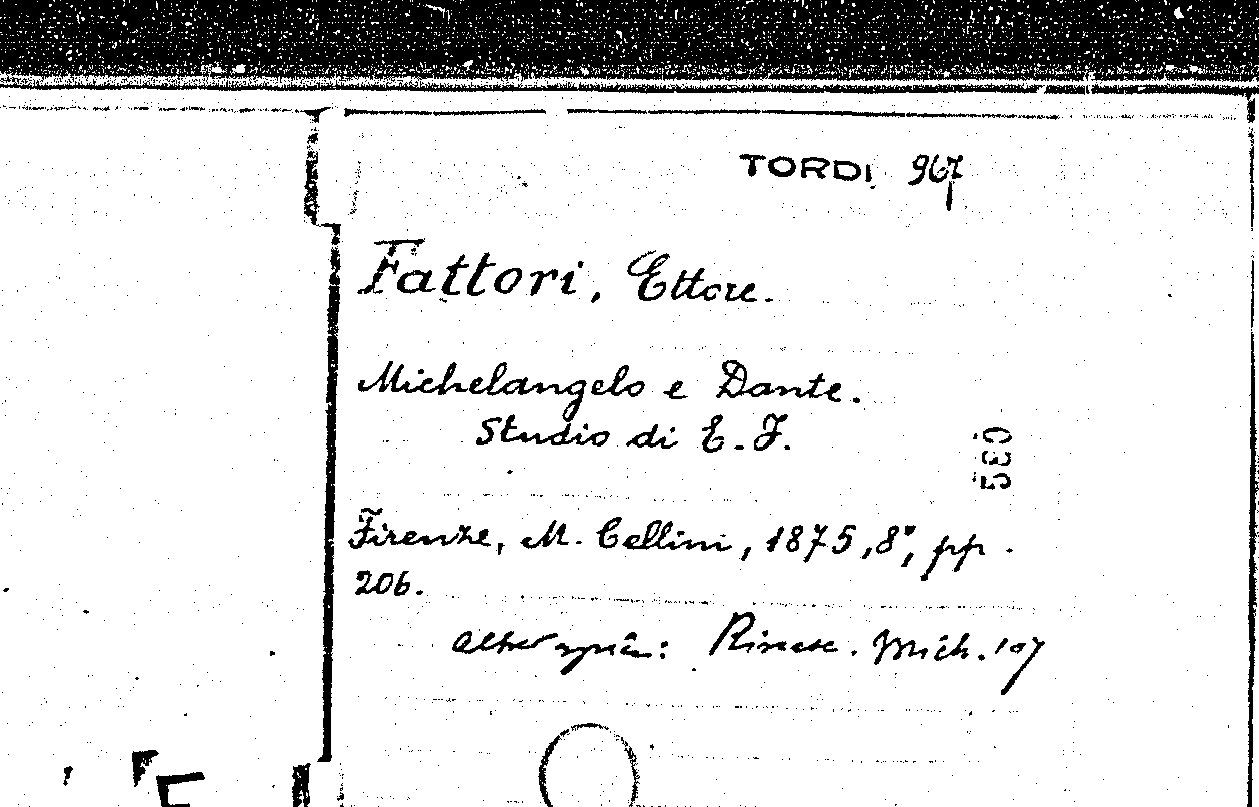 TORDI 967
Fattori, Ettore.
Michelangelo e Dante.
Studio di E. F.
Firenze, M. Cellini, 1875, 8°, pp.
206.
Altra copia: Rinasc. Mich. 107